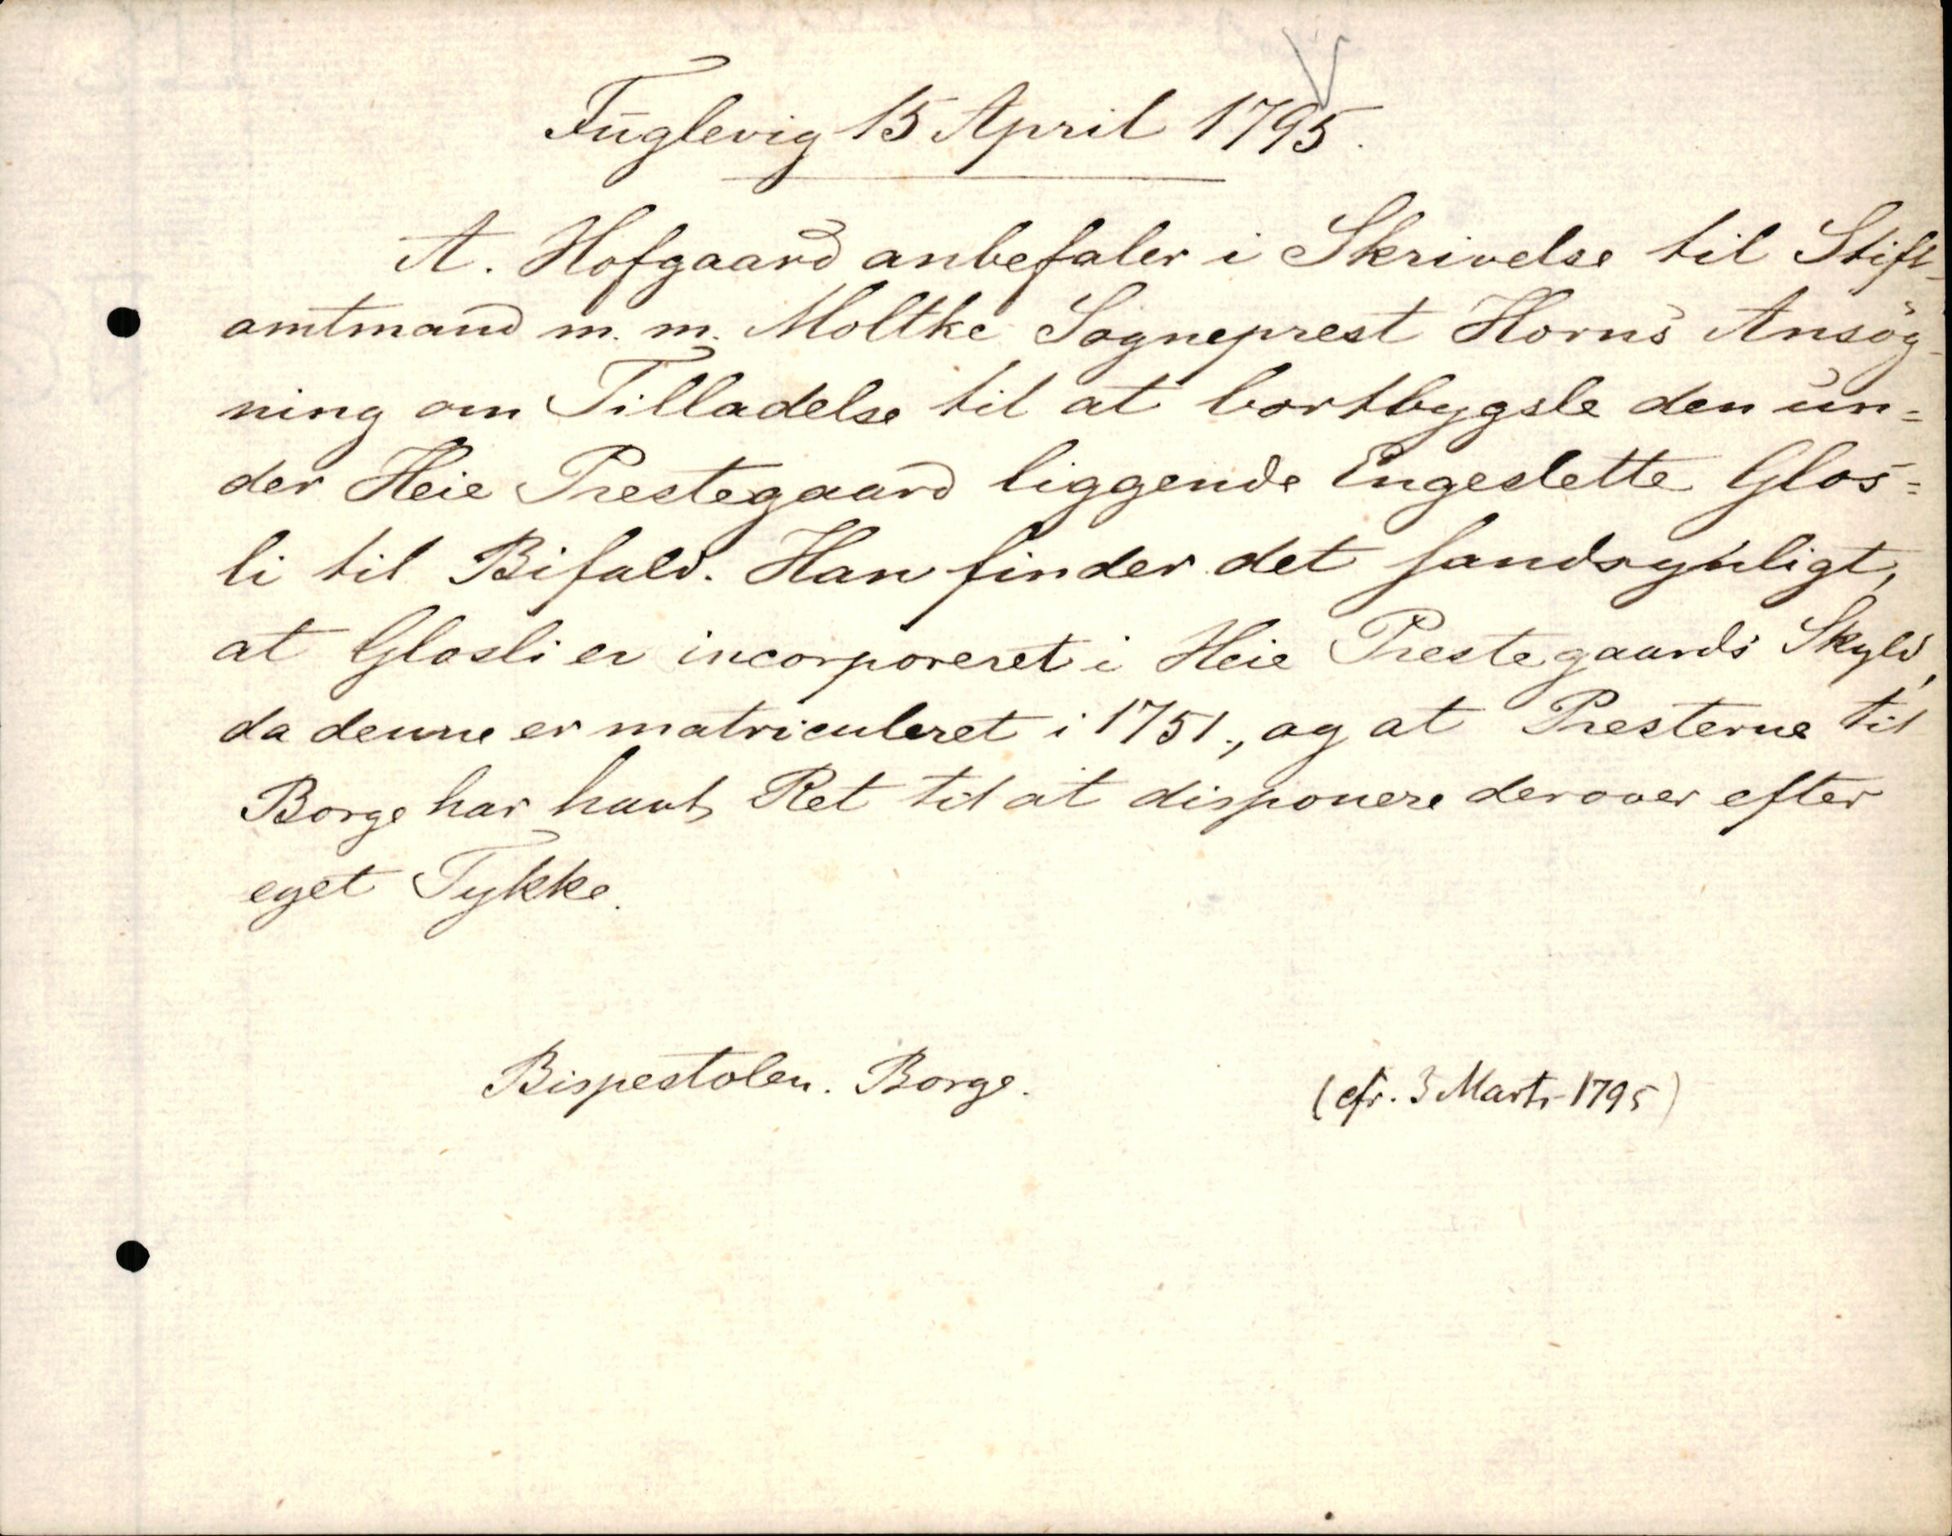 Fuglevig 15 April 1795.
A. Hofgaard anbefaler i Skrivelse til Stift-
amtmand m. m. Moltke Sogneprest Horns Ansøg-
ning om Tilladelse til at bortbygsle den un=
der Heie Prestegaard liggende Engeslette Glos=
li til Bifald. Han finder det sandsynligt,
at Glosli er incorporeret i Heie Prestegaards Skyld,
da denne er matriculeret i 1751., og at Presterne til
Borge har havt Ret til at disponere derover efter
eget Tykke.
Bispestolen. Borge.
(cfr. 3 Marts 1795)